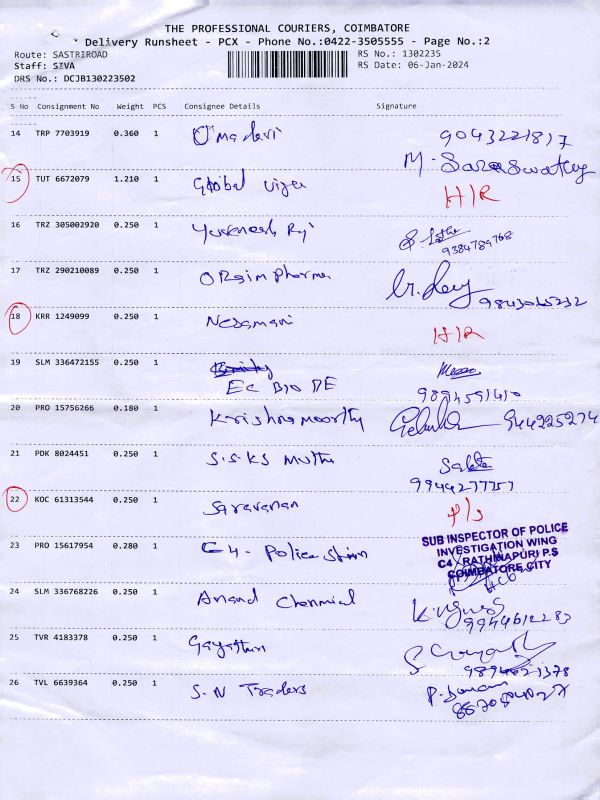 THE PROFESSIONAL COURIERS, COIMBATORE
Delivery Runsheet - PCX - Phone No.:0422-3505555 - Page No.:2
Route: SASTRIROAD
RS No.: 1302235
Staff: SIVA
RS Date: 06-Jan-2024
DRS No.: DCJB130223502
S No Consignment No Weight PCS Consignee Details Signature
14 TRP 7703919 0.360 1 Umadevi 9043221817
M. Saraswathy
15 TUT 6672079 1.210 1 Global H/R
16 TRZ 305002920 0.250 1
9384789768
17 TRZ 290210089 0.250 1 Pharma
9843065232
18 KRR 1249099 0.250 1 Nesamani H/R
19 SLM 336472155 0.250 1
EC BIO DE 9894591410
20 PRO 15756266 0.180 1 Krishnamoorthy 944225274
21 PDK 8024451 0.250 1 S.S.KS Muthu
9944277757
22 KOC 61313544 0.250 1 Saravanan
SUB INSPECTOR OF POLICE
INVESTIGATION WING
23 PRO 15617954 0.280 1 C4 - Police C4 RATHINAPURI P.S
COIMBATORE CITY
24 SLM 336768226 0.250 1 Anand Chemical
9944612283
25 TVR 4183378 0.250 1 Gayathri
9894021378
26 TVL 6639364 0.250 1 S.N Traders